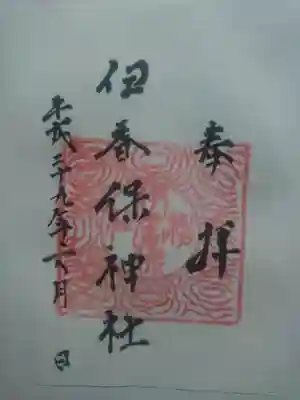 奉拝
伊香保神社
平成二十九年月日